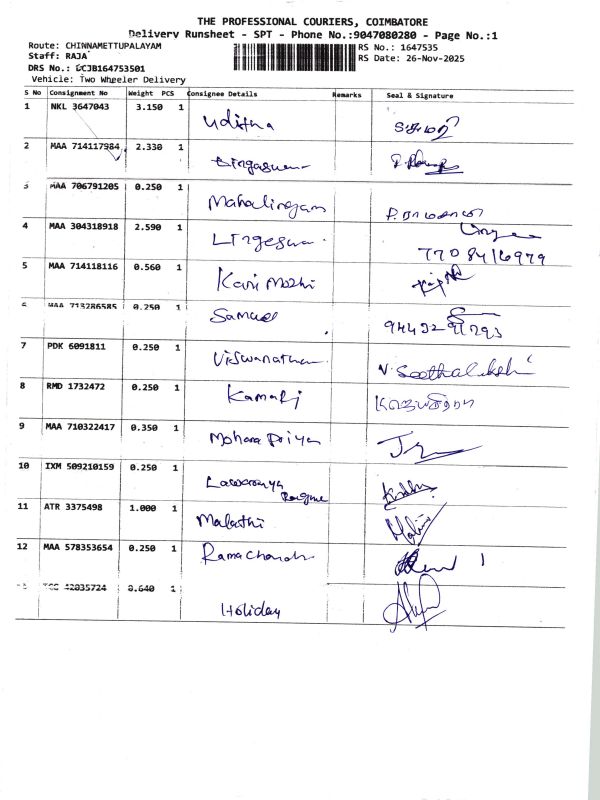 THE PROFESSIONAL COURIERS, COIMBATORE
Delivery Runsheet - SPT - Phone No.:9047080280 - Page No.:1
Route: CHINNAMETTUPALAYAM RS No.: 1647535
Staff: RAJA RS Date: 26-Nov-2025
DRS No.: CCJB164753501
Vehicle: Two Wheeler Delivery
S No Consignment No Weight PCS Consignee Details Remarks Seal & Signature
1 NKL 3647043 3.150 1
2 MAA 714117984 2.330 1
3 MAA 706791205 0.250 1 Mahalingam
4 MAA 304318918 2.590 1 Lingeswa
7708416979
5 MAA 714118116 0.560 1 Kavi Mozhi
6 MAA 713286585 0.250 1 Samuel
7 PDK 6091811 0.250 1 Viswanathan V. Seethalakshi
8 RMD 1732472 0.250 1 Kamaraj
9 MAA 710322417 0.350 1 Mohana Priya
10 IXM 509210159 0.250 1 Lawaronya
11 ATR 3375498 1.000 1 Malathi
12 MAA 578353654 0.250 1 Ramachandr
42035724 0.640 1 Holiday